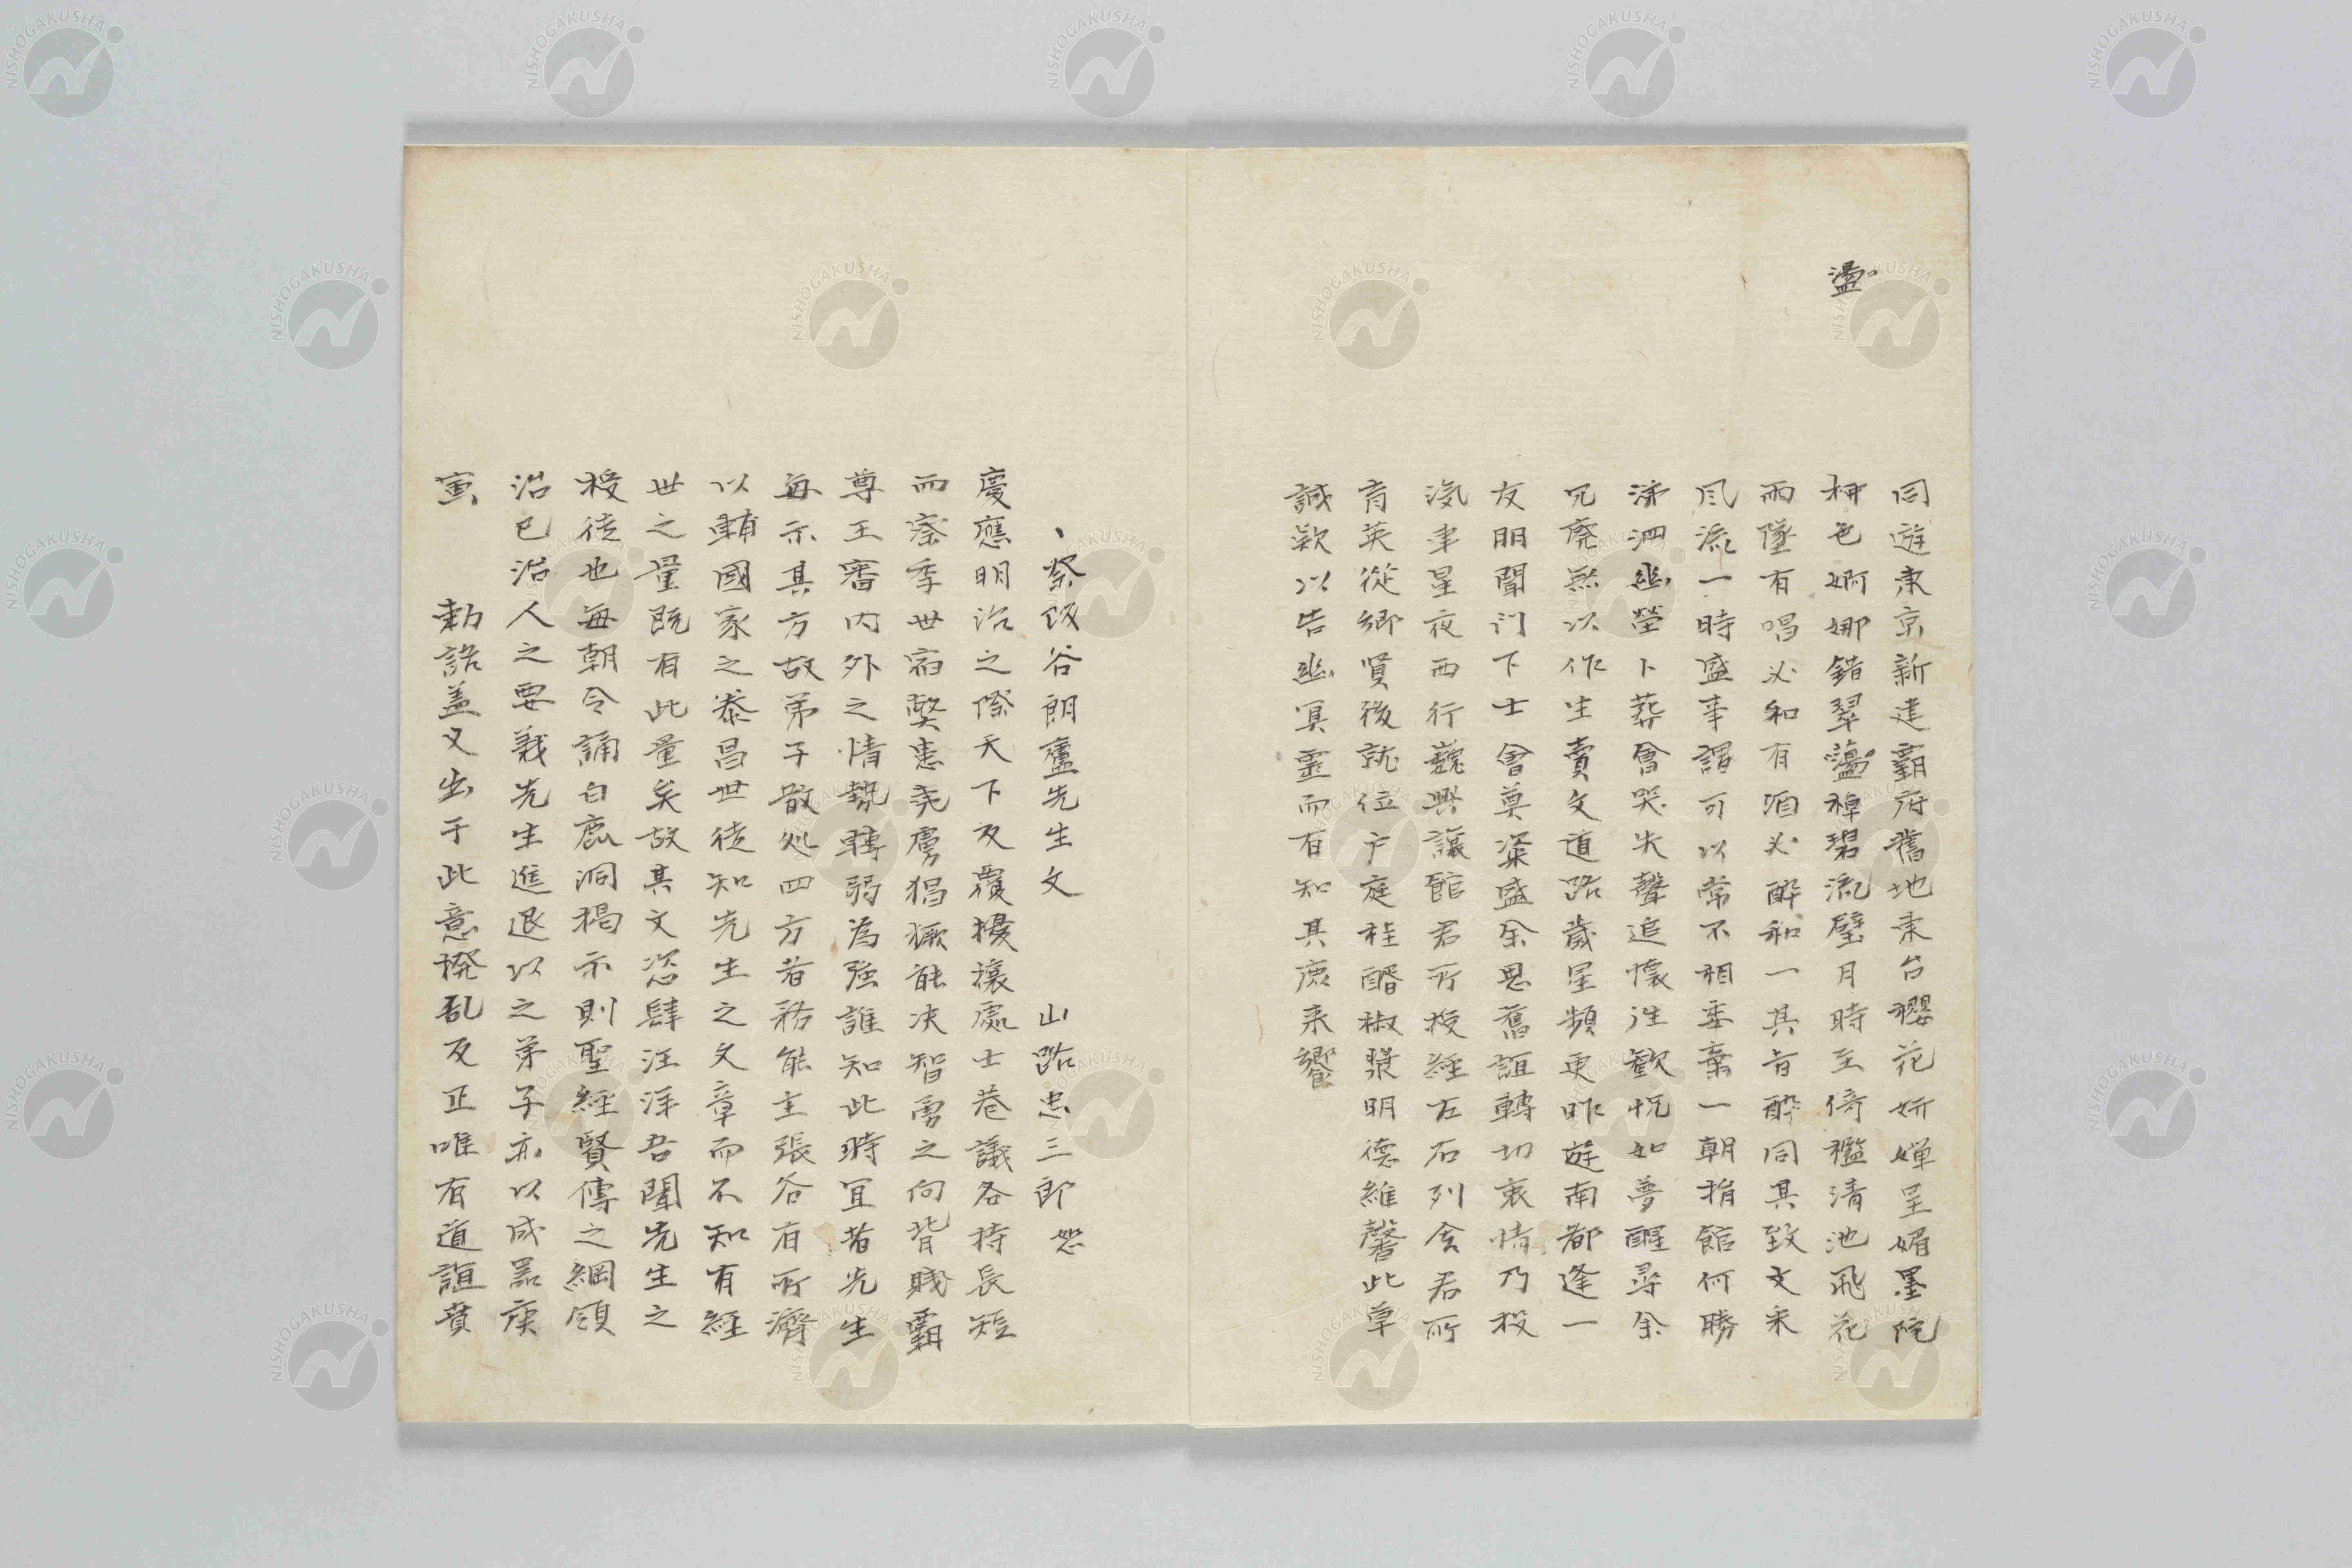 盪
同遊東京新建覇府舊地東台櫻花妍嬋呈媚墨院
柳色婀娜錯翠盪神碧流璧月時至倚襤清池飛花
雨墜有唱必和有酒必酔和一其旨酔同其致文采
風流一時盛事謂可以常不相委棄一朝捐館何勝
涕泗幽塋卜葬會哭失聲追懐往歓怳如夢醒尋余
冗廃無以作生賣文道路歳星頻更昨遊南都逢一
友朋聞門下士會奠粢盛余思舊誼轉切衷情乃投
汽車星夜西行巍興讓館君所授經左右列舎君所
育英從郷賢後就位戸庭桂醑椒漿明徳維馨此草
誠欵以告幽冥靈而有知其庶来饗
、祭阪谷朗廬先生文 山路忠三郎 恕
慶應明治之際天下反覆擾攘處士巷議各持長短
而察季世宿弊患堯虜猖獗能决智勇之向背賤覇
尊王審内外之情勢轉弱為強誰知此時宜者先生
毎示其方故弟子散処四方者務能主張谷有所濟
以輔國家之泰昌世徒知先生之文章而不知有經
世之量既有此量矣故其文恣肆汪洋吾聞先生之
授徒也毎朝令誦白鹿洞掲示則聖經賢傳之綱領
治已治人之要義先生進退以之弟子亦以成器庚
寅 勅語盖又出于此意撥乱反正唯有道誼賁